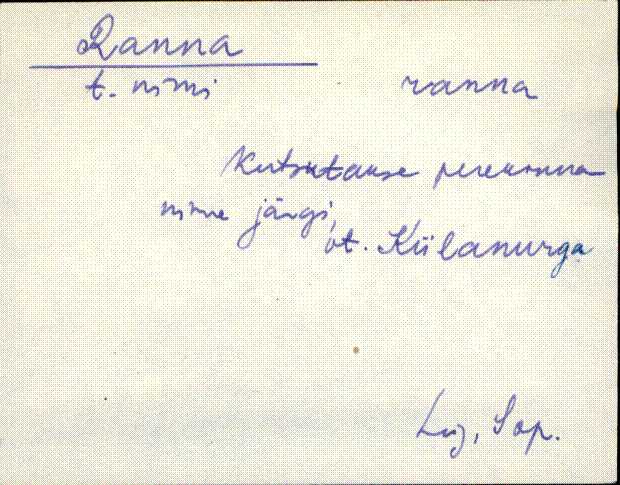 Ranna
t. nimi ranna
Kutsutakse perekonna
nime järgi,
vt. Külanurga
Lüg, Sop.